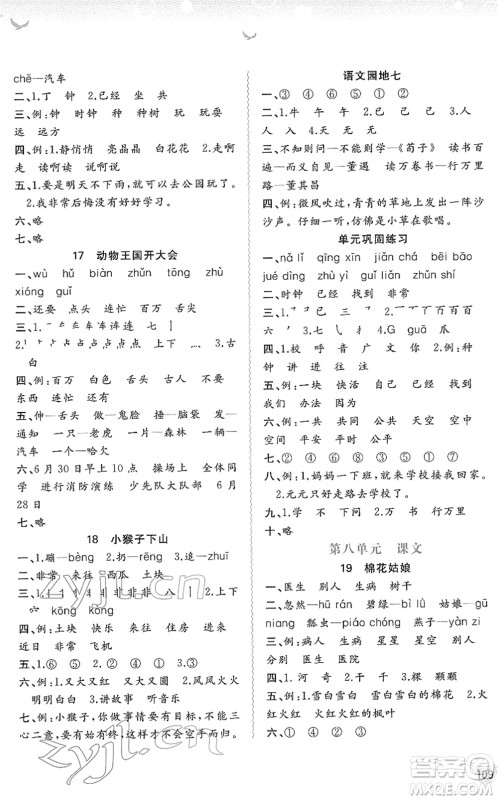 chē—汽车
二、1.丁 钟 2.已经 坐 共
三、例:时 钟 种 种树 玩 玩耍
远 远方
四、1.静悄悄 亮晶晶 白花花 2.走啊
走 读啊读 说呀说
五、1.要是明天不下雨,就可以去公园玩了。
2.我非常后悔没有好好学习。
六、略
17 动物王国开大会
一、wù hǔ biàn zhǔn tōng zhù
xióng guǐ
二、还要 点头 连忙 百年 舌头
三、1.
2. 3.古
白
四、例:百年 白色 舌头 点头 不要
东西 连忙 还在
五、伸—舌头 做—鬼脸 捶—脑袋 发—
通知 一只—老虎 一片—森林 一辆—
汽车 一个—哈欠
六、6月30早上10点 操场上 全体同
学 进行消防演练 少先队大队部 6月
28日
七、略
18 小猴子下山
一、1.蹦—bèng 2.扔—rēng 3.追—zhuī
二、非常 来往 西瓜 土块
三、
六 kōng kǒng
四、例:土块 快乐 非常 常常 来往
往年 非常 飞机
五、1.⑥ ⑤ ① ② ④ 2.③
六、例:1.又大又红 又大又圆 2.风风火火
明明白白 3.讲故事 听音乐
七、例:小猴子,你做事情要一心一意,不能三
心二意,要有始有终,这样才不会空手而归。
语文园地七
一、③ ④ ⑥ ⑤ ① ②
二、1.牛 午 午 牛 2.己 已 己 已
人 入 3.大 天 无 无
三、不知则问—不能则学—《荀子》 读书百
遍—其义自见—董遇 读万卷书—行万里
路—董其昌
四、例:微风吹过,青青的草地上发出一阵沙
沙声。仔细一听,仿佛是小草在歌唱。
单元巩固练习
一、nǎ lǐ qīng xīn kè běi bāo
jué dìng yè zì jì zhǔn shǔ
二、时钟 已经 找到 非常
三、1.
六 4.G guā
四、1.校 呼 音 广 文 你 2.例:钟
种 讲 进 往 注
五、例:一块 快活 自己 已经 丢失
无关
六、例:一共 共同 公共 天空 空中
空间
七、② ④ ⑥ ③ ⑤ ① ⑦
八、例:1.妈妈一下班,就找我一起回家。
2.元元只好走路去学校。
九、1.③ ② ① ④ 2.①
十、略
第八单元 课文
19 棉花姑娘
一、医生 别人 生病 树干
二、忽然—hū rán 碧绿—bì lǜ 姑娘—gū
niang 瓢虫—piáo chóng 燕子—yàn zi
三、例:病人 生病 星星 星空 别人
分别 医生 医院
四、1.河 奇 2.干 棵 颗颗
五、例:雪白雪白 雪白雪白的棉花 火
红火红 火红火红的枫叶
六、①
109
zyjl.cn
答案圈